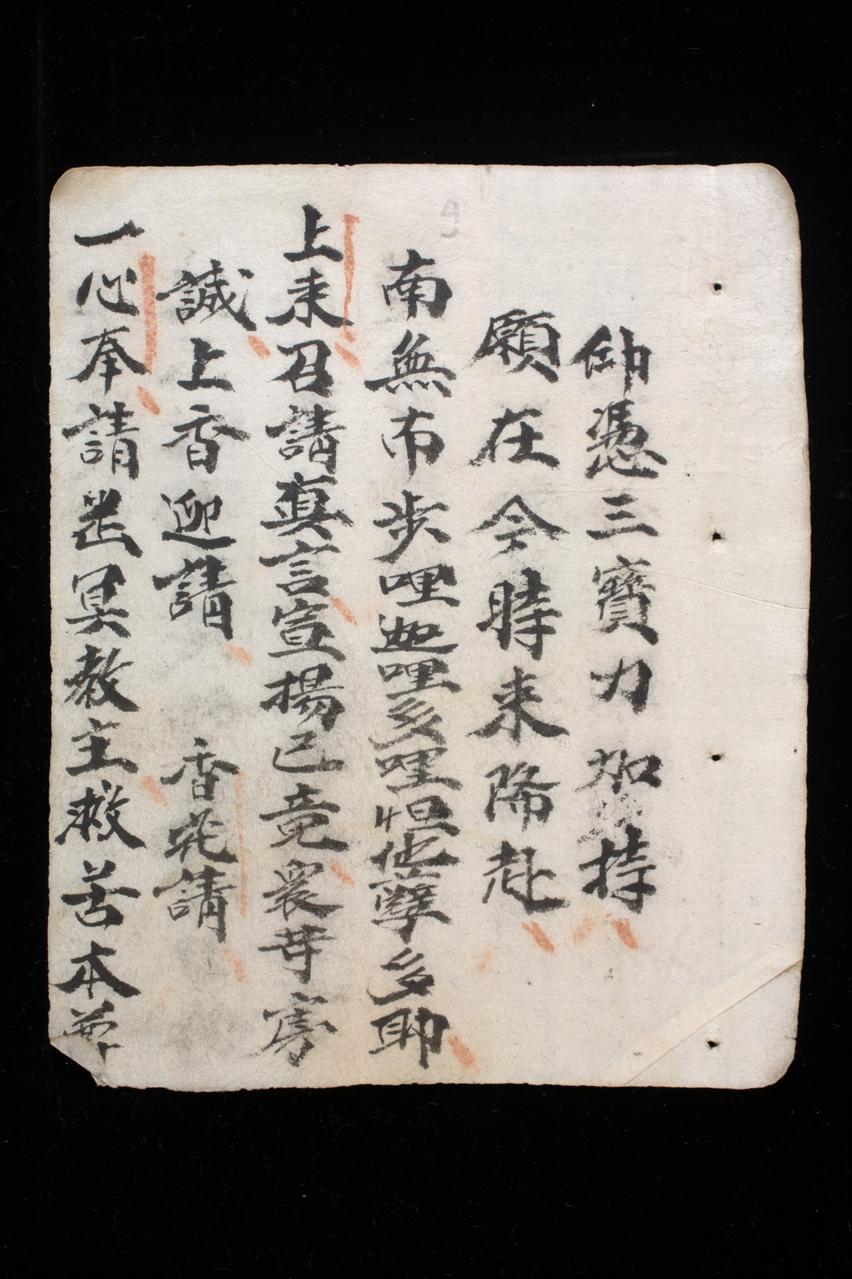 仰憑三寶力加持
願在今時来降赴
南無布步哩迦哩多哩怛他孽多助
上来召請真言宣揚已竟衆等
誠上香迎請 香花請
一心奉請 冥教主救苦本尊